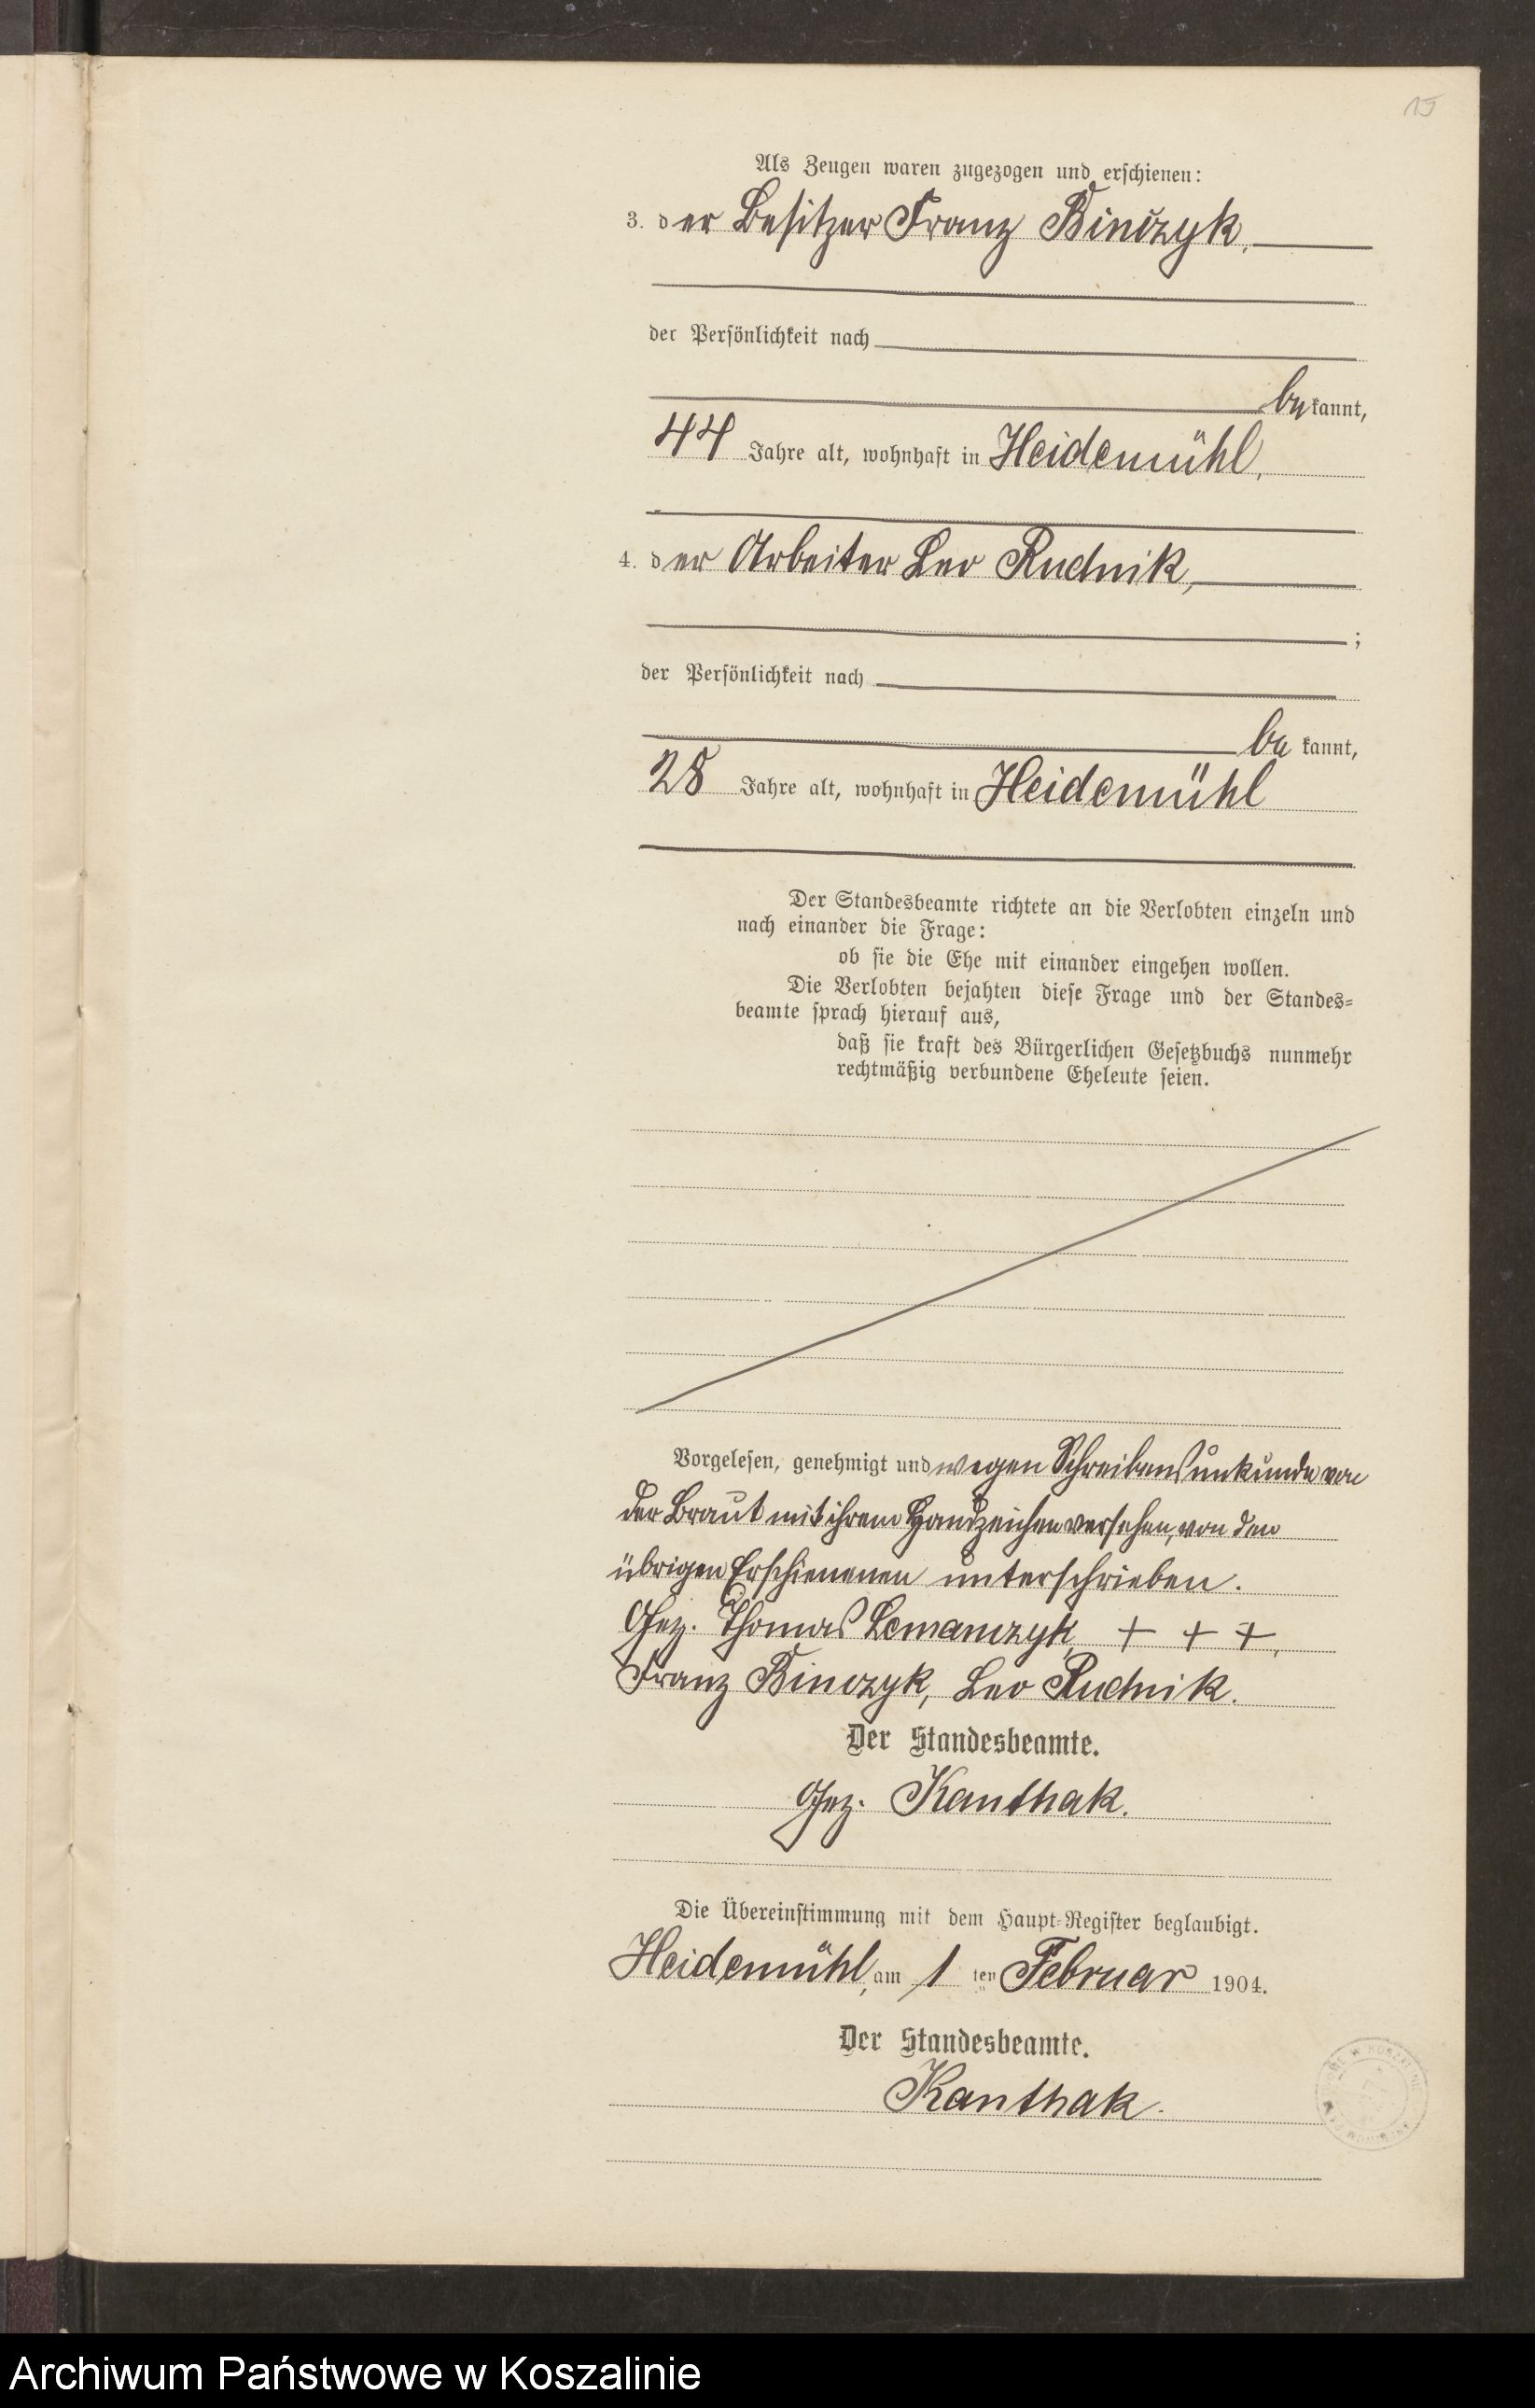 15
Als Zeugen waren zugezogen und erschienen:
3. der Besitzer Franz Binczyk,
der Persönlichkeit nach
bekannt,
44 Jahre alt, wohnhaft in Heidemühl,
4. der Arbeiter Leo Rudnik,
;
der Persönlichkeit nach
be kannt,
28 Jahre alt, wohnhaft in Heidemühl
Der Standesbeamte richtete an die Verlobten einzeln und
nach einander die Frage:
ob sie die Ehe mit einander eingehen wollen.
Die Verlobten bejahten diese Frage und der Standes=
beamte sprach hierauf aus,
daß sie kraft des Bürgerlichen Gesetzbuchs nunmehr
rechtmäßig verbundene Eheleute seien.
Vorgelesen, genehmigt und wegen Schreibensunkunde von
der Braut mit ihrem Handzeichen versehen, von den
übrigen Erschienenen unterschrieben.
Gez. Thomas Lemanczyk, + + +,
Franz Binczyk, Leo Rudnik.
Der Standesbeamte.
Gez. Kanthak.
Die Übereinstimmung mit dem Haupt-Register beglaubigt.
Heidemühl, am 1 ten Februar 1904.
Der Standesbeamte.
Kanthak.
Archiwum Państwowe w Koszalinie